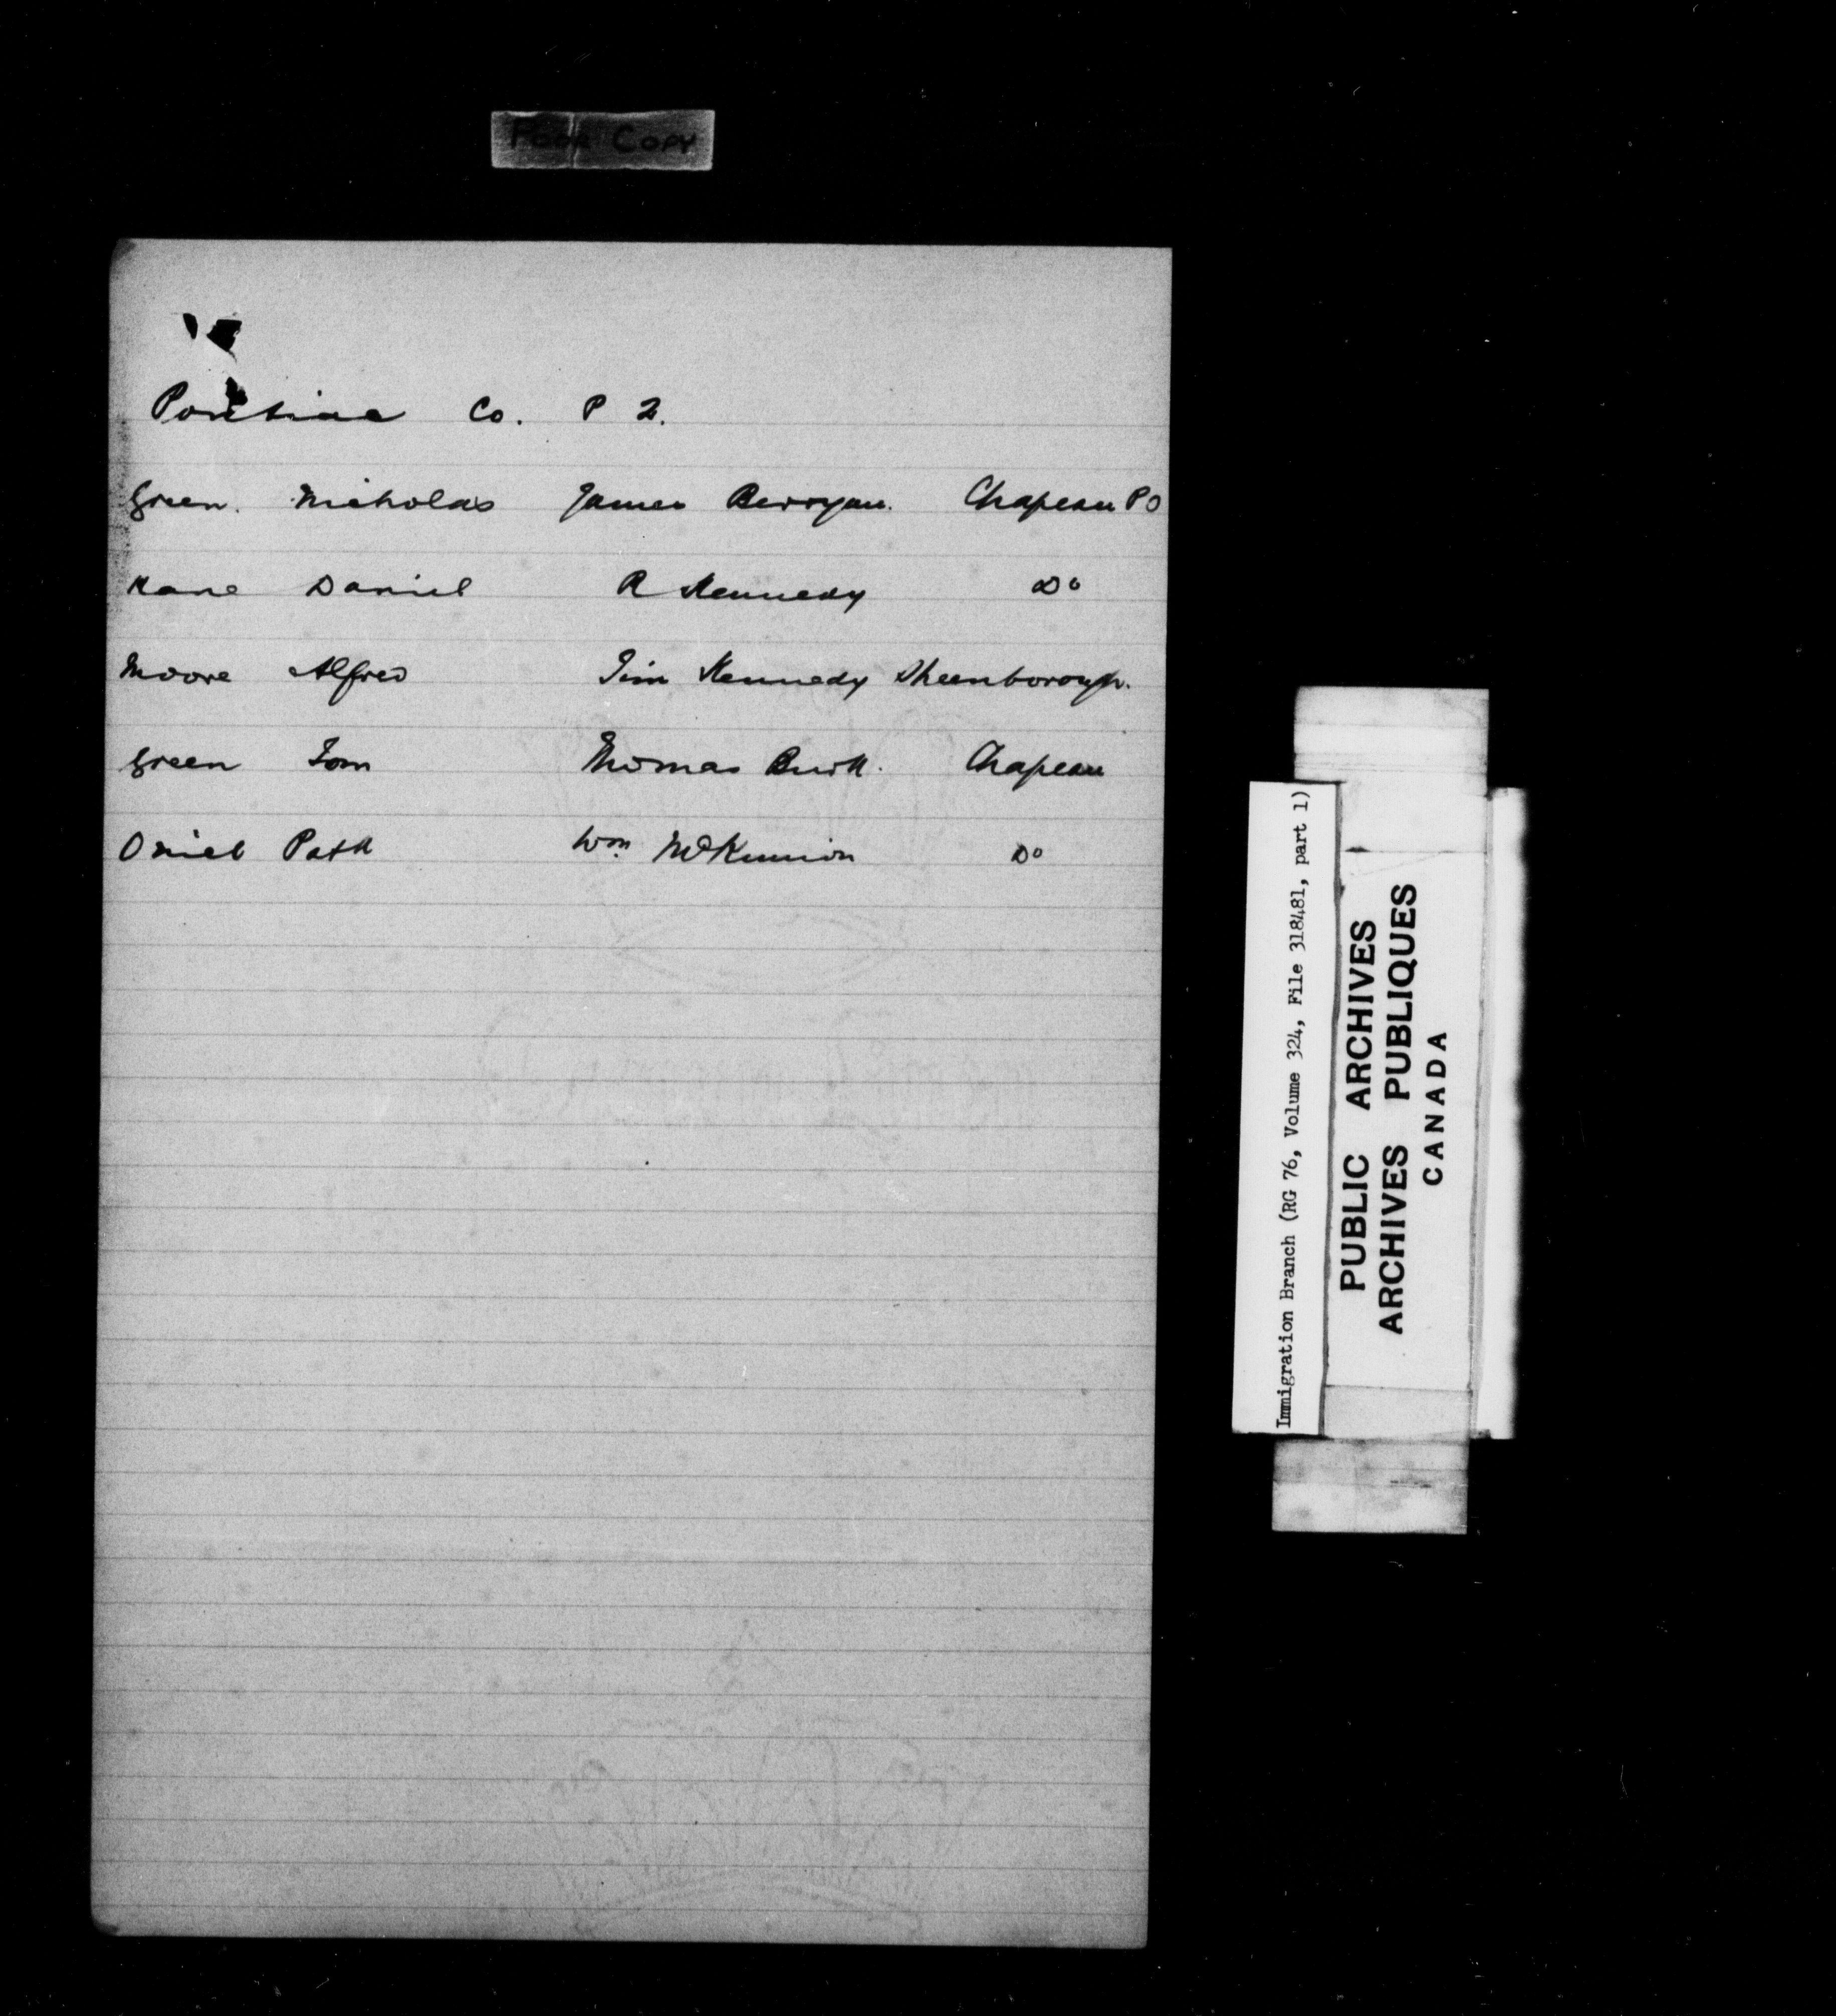 Poor Copy
Pontiac Co. P 2.
Green. Nicholas James Berrgan. Chapeau PO
Kane Daniel R Kennedy Do
Moore Alfred Jim Kennedy Sheenborough.
Green Tom Thomas Burk. Chapeau
Oniel Patk Wm. McKinnion Do
Immigration Branch (RG 76, Volume 324, File 318481, part 1)
PUBLIC ARCHIVES
ARCHIVES PUBLIQUES
CANADA